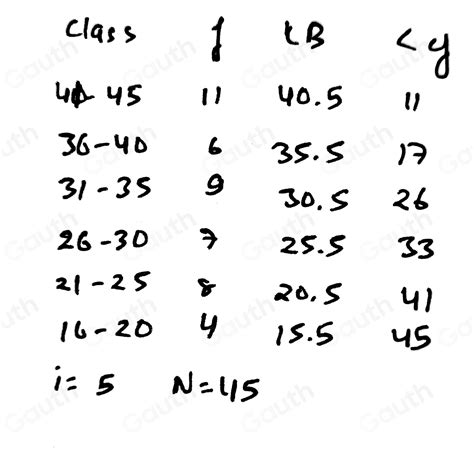 Class f LB <y
41-45 11 40.5 11
36-40 6 35.5 17
31-35 9 30.5 26
26-30 7 25.5 33
21-25 8 20.5 41
16-20 4 15.5 45
i= 5 N=45